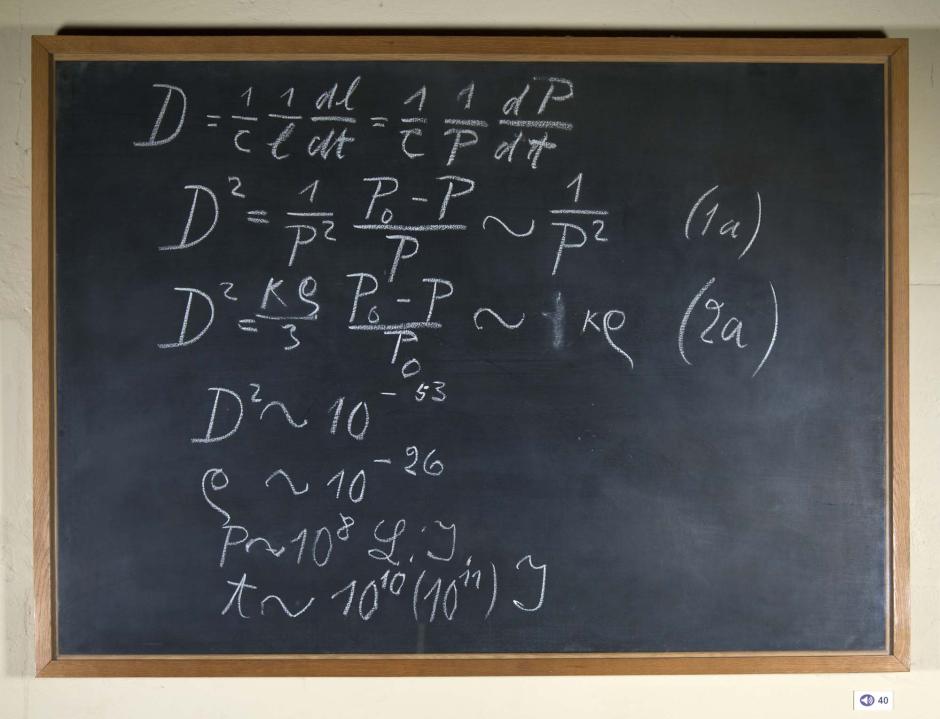 D = 1/c 1/l dl/dt = 1/c 1/P dP/dt
D² = 1/P² (P₀-P)/P ~ 1/P² (1a)
D² = κρ/3 (P₀-P)/P₀ ~ κρ (2a)
D² ~ 10⁻⁵³
ρ ~ 10⁻²⁶
P ~ 10⁸ L.J.
t ~ 10¹⁰(10¹¹) J
40